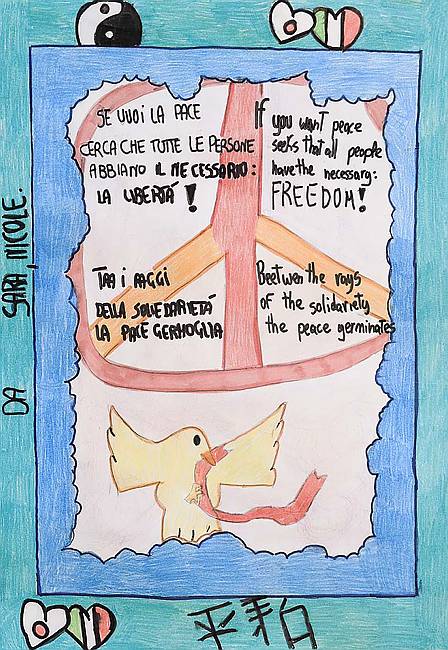 SE VUOI LA PACE
CERCA CHE TUTTE LE PERSONE
ABBIANO IL NECESSARIO:
LA LIBERTÁ!
If you want peace
seeks that all people
have the necessary:
FREEDOM!
TRA I RAGGI
DELLA SOLIEDARIETÁ
LA PACE GERMOGLIA
Beetwen the rays
of the solidariety
the peace germinates
DA SARA, NICOLE.
平